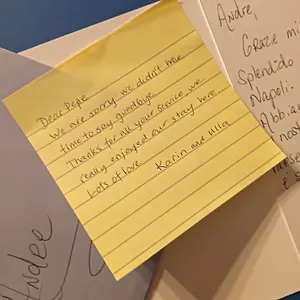 Dear Pepe
We are sorry we didn't have
time to say goodbye.
Thanks for all your service, we
really enjoyed our stay here.
Lots of love
Karin and Ulla
Andre,
Grazie mi
Splendido
Napoli.
Abbia
Andee